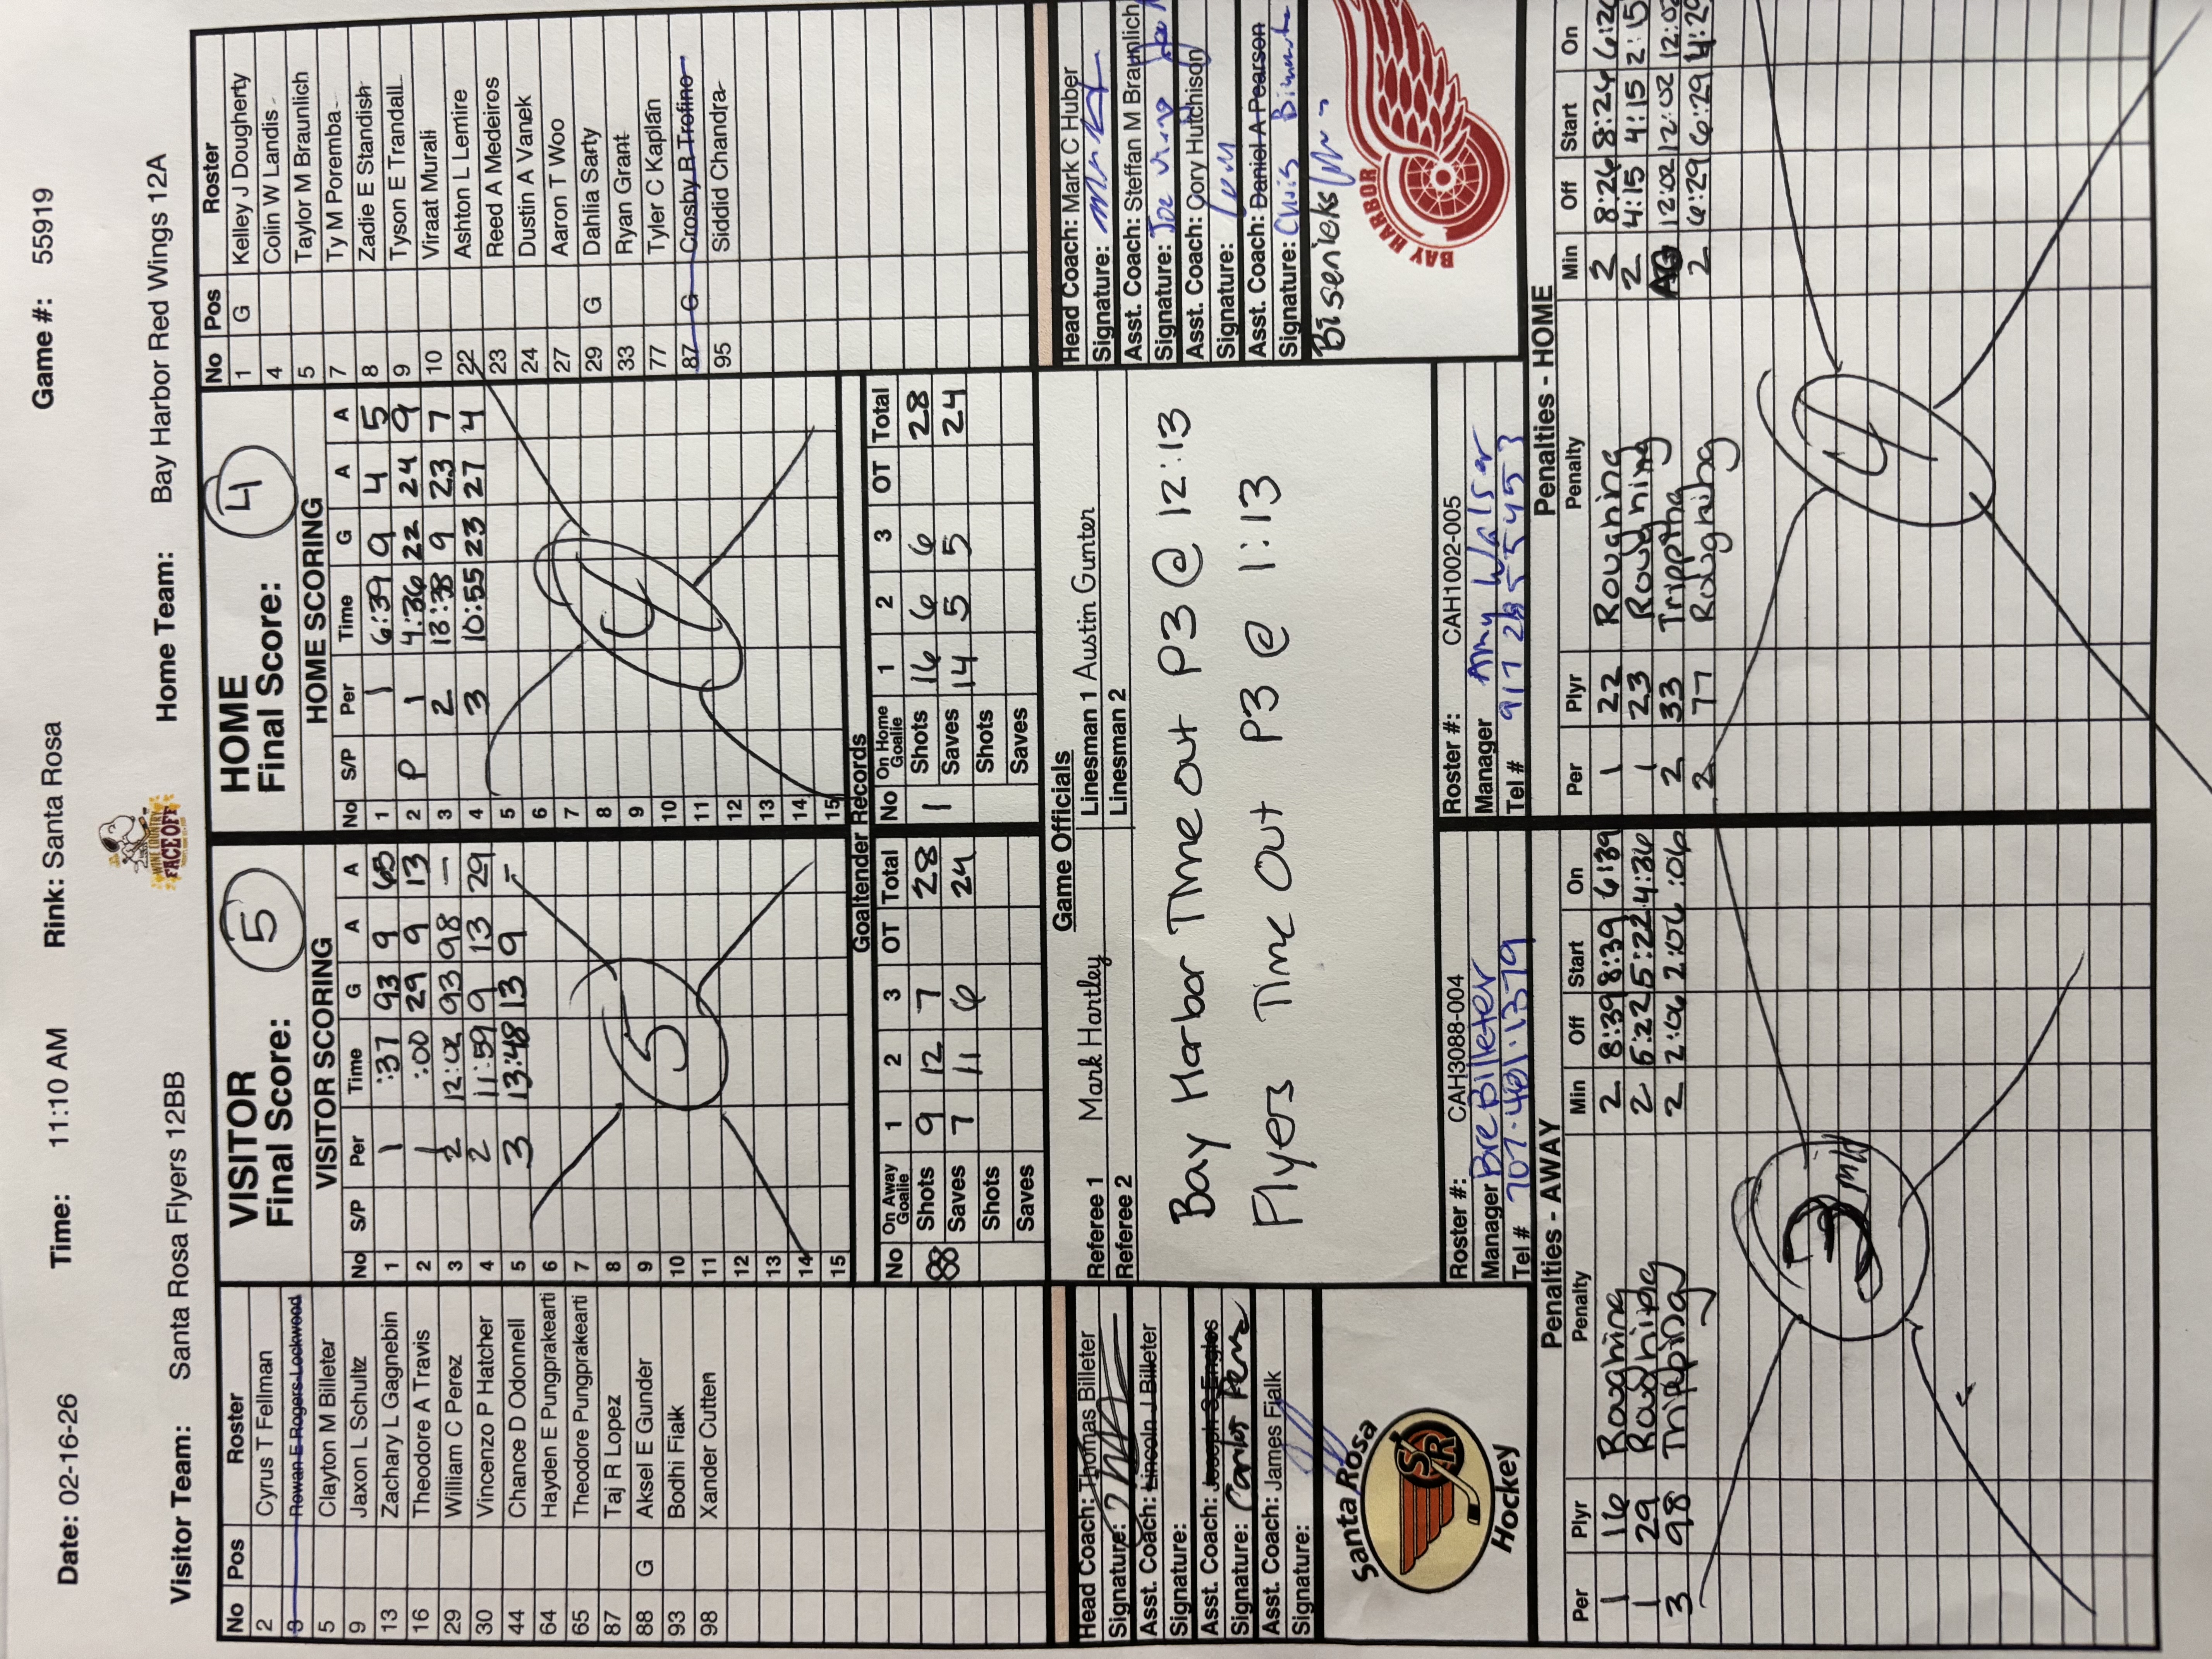 Date: 02-16-26 Time: 11:10 AM Rink: Santa Rosa Game #: 55919
WINE COUNTRY
FACEOFF
Visitor Team: Santa Rosa Flyers 12BB Home Team: Bay Harbor Red Wings 12A
No Pos Roster
2 Cyrus T Fellman
3 Rowan E Rogers-Lockwood
5 Clayton M Billeter
9 Jaxon L Schultz
13 Zachary L Gagnebin
16 Theodore A Travis
29 William C Perez
30 Vincenzo P Hatcher
44 Chance D Odonnell
64 Hayden E Pungprakearti
65 Theodore Pungprakearti
87 Taj R Lopez
88 G Aksel E Gunder
93 Bodhi Fialk
98 Xander Cutten
VISITOR
Final Score: 5
VISITOR SCORING
No S/P Per Time G A A
1 1 :37 93 9 65
2 1 :00 29 9 13
3 2 12:02 93 98 —
4 2 11:59 9 13 29
5 3 13:48 13 9 -
6
7
8
9
10
11
12
13
14
15
5
HOME
Final Score: 4
HOME SCORING
No S/P Per Time G A A
1 1 6:39 9 4 5
2 P 1 4:36 22 24 9
3 2 13:38 9 23 7
4 3 10:55 23 27 4
5
6
7
8
9
10
11
12
13
14
15
4
No Pos Roster
1 G Kelley J Dougherty
4 Colin W Landis
5 Taylor M Braunlich
7 Ty M Poremba
8 Zadie E Standish
9 Tyson E Trandall
10 Viraat Murali
22 Ashton L Lemire
23 Reed A Medeiros
24 Dustin A Vanek
27 Aaron T Woo
29 G Dahlia Sarty
33 Ryan Grant
77 Tyler C Kaplan
87 G Crosby R Trofino
95 Siddid Chandra
Goaltender Records
No On Away Goalie 1 2 3 OT Total
88 Shots 9 12 7 28
Saves 7 11 6 24
Shots
Saves
No On Home Goalie 1 2 3 OT Total
1 Shots 16 6 6 28
Saves 14 5 5 24
Shots
Saves
Head Coach: Thomas Billeter
Signature:
Asst. Coach: Lincoln J Billeter
Signature:
Asst. Coach: Joseph S Engles
Signature: Carlos Perez
Asst. Coach: James Fialk
Signature:
Santa Rosa
SR
Hockey
Game Officials
Referee 1 Mark Hartley Linesman 1 Austin Gunter
Referee 2 Linesman 2
Bay Harbor Time out P3 @ 12:13
Flyers Time Out P3 @ 1:13
Roster #: CAH3088-004
Manager Bre Billeter
Tel # 707.481.1379
Roster #: CAH1002-005
Manager Amy Walser
Tel # 917 285 5453
Head Coach: Mark C Huber
Signature:
Asst. Coach: Steffan M Braunlich
Signature: Joe
Asst. Coach: Cory Hutchison
Signature:
Asst. Coach: Daniel A Pearson
Signature: Chris
Bisenieks
BAY HARBOR
Penalties - AWAY
Per Plyr Penalty Min Off Start On
1 16 Roughing 2 8:39 8:39 6:39
1 29 Roughing 2 5:22 5:22 4:36
3 98 Tripping 2 2:06 2:06 :06
3 MH
Penalties - HOME
Per Plyr Penalty Min Off Start On
1 22 Roughing 2 8:24 8:24 6:24
1 23 Roughing 2 4:15 4:15 2:15
2 33 Tripping AG 12:02 12:02 12:02
2 77 Roughing 2 6:29 6:29 4:29
4